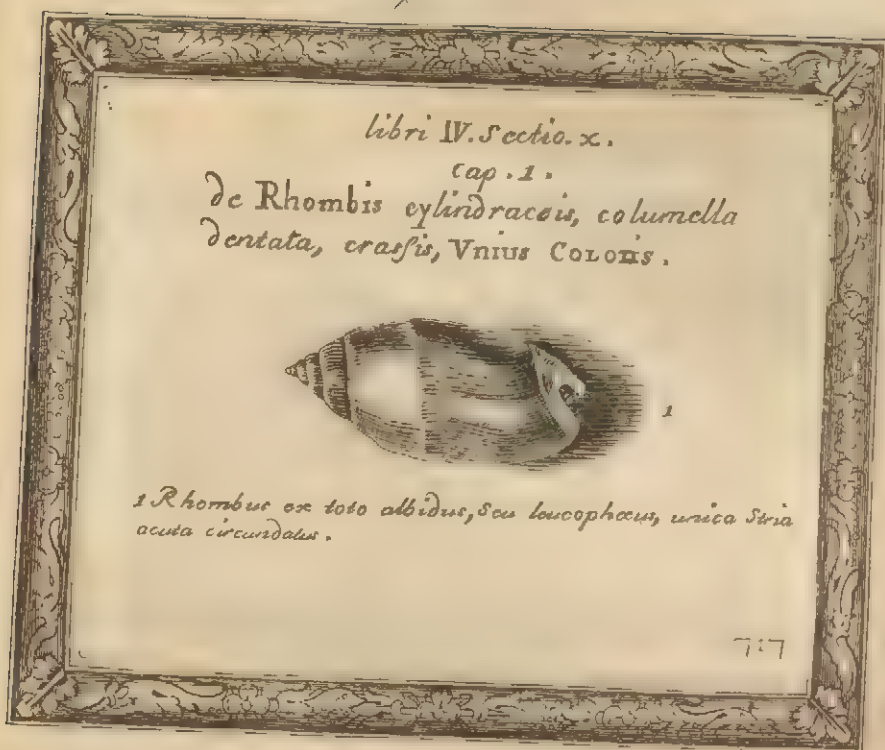 libri IV. Sectio. x.
cap. 1.
de Rhombis cylindraceis, columella
dentata, crassis, Vnius Coloris.
1
1 Rhombus ex toto albidus, seu leucophæus, unica Stria
acuta circundatus.
717